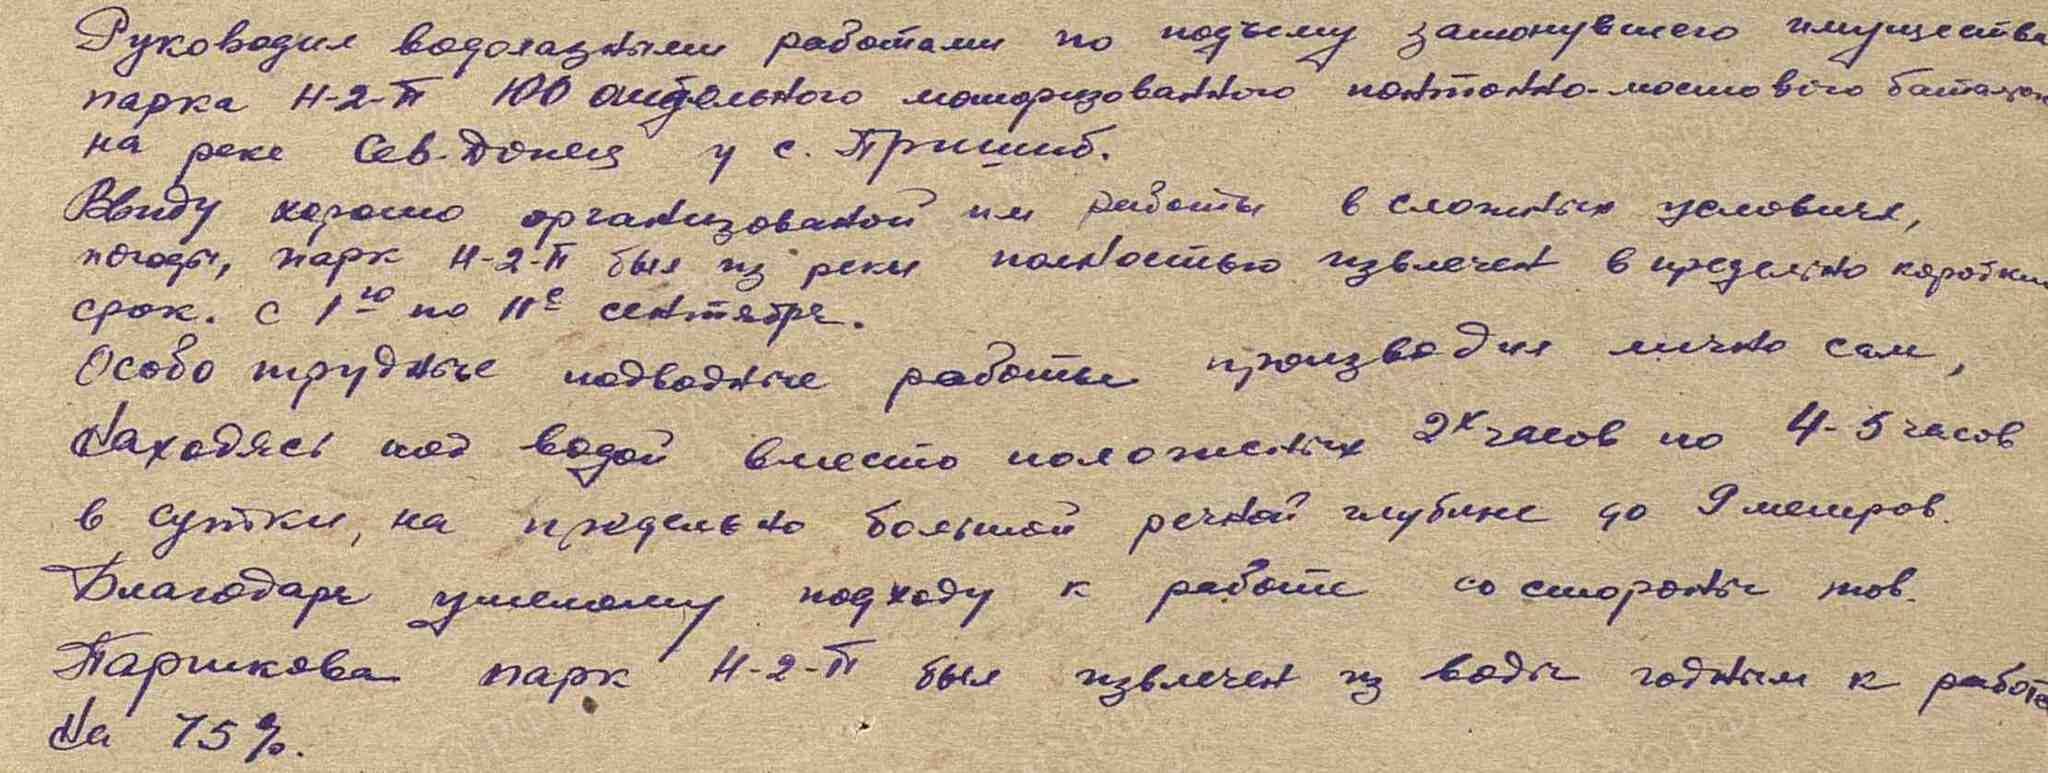 Руководил водолазными работами по подъему затонувшего имущества
парка Н-2-П 100 отдельного моторизованного понтонно-мостового батальон
на реке Сев. Донец у с. Пришиб.
Ввиду хорошо организованой им работы в сложных условиях,
погоды, парк Н-2-П был из реки полностью извлечен в предельно короткий
срок. с 1го по 11е сентября.
Особо трудные подводные работы производил лично сам,
находясь под водой вместо положеных 2х часов по 4-5 часов
в сутки, на предельно большой речной глубине до 9 метров.
Благодаря умелому подходу к работе со стороны тов.
Паршкова парк Н-2-П был извлечен из воды годным к работе
на 75%.